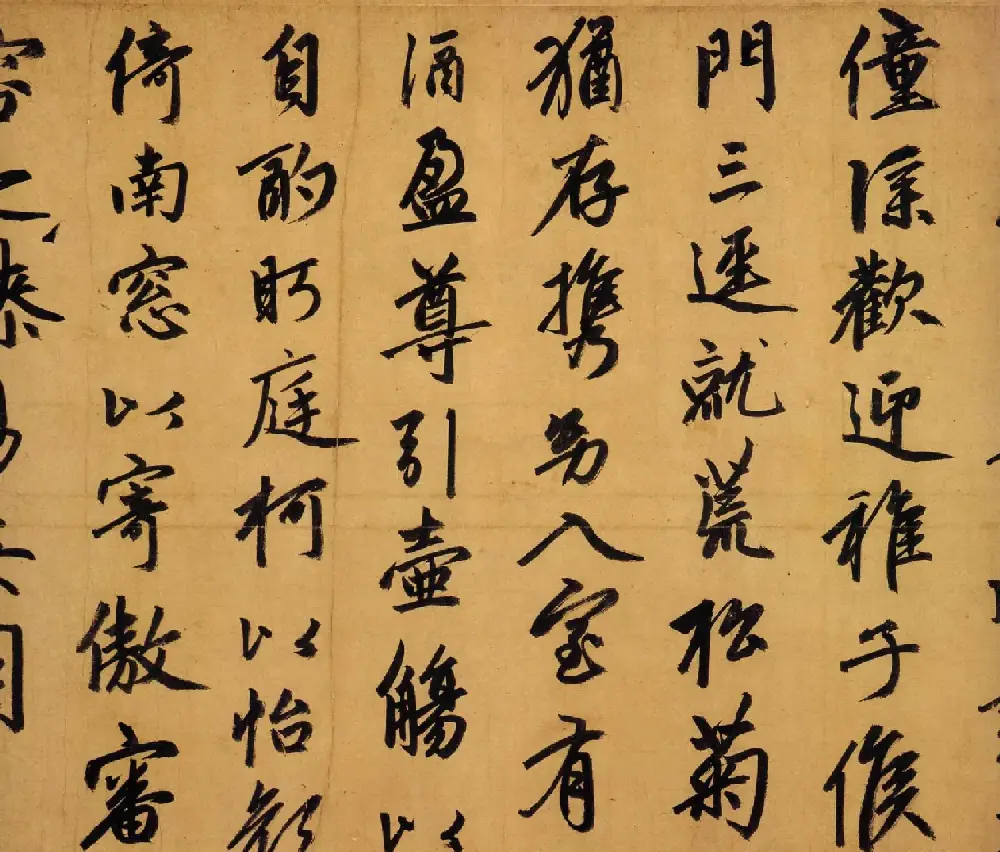 僮僕歡迎稚子候
門三逕就荒松菊
猶存携幼入室有
酒盈尊引壺觴以
自酌眄庭柯以怡顏
倚南窓以寄傲審
容之
易安